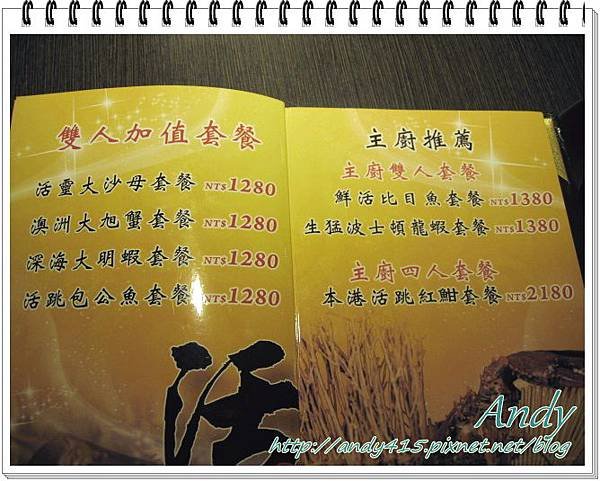 雙人加值套餐
活靈大沙母套餐 NT$1280
澳洲大旭蟹套餐 NT$1280
深海大明蝦套餐 NT$1280
活跳包公魚套餐 NT$1280
活
主廚推薦
主廚雙人套餐
鮮活比目魚套餐 NT$1380
生猛波士頓龍蝦套餐 NT$1380
主廚四人套餐
本港活跳紅魽套餐 NT$2180
Andy
http://andy415.pixnet.net/blog